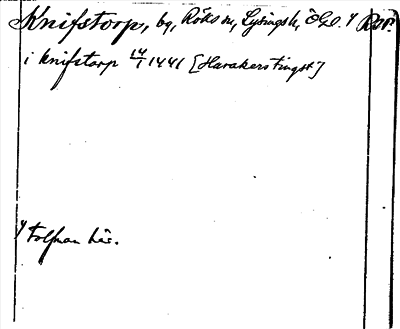 Knifstorp, by, Röks sn, Lysingsh, Ögl. 1) Rap.
i knifstorp 14/1 1441 [Harakers tingst]
1) Tolfman här.